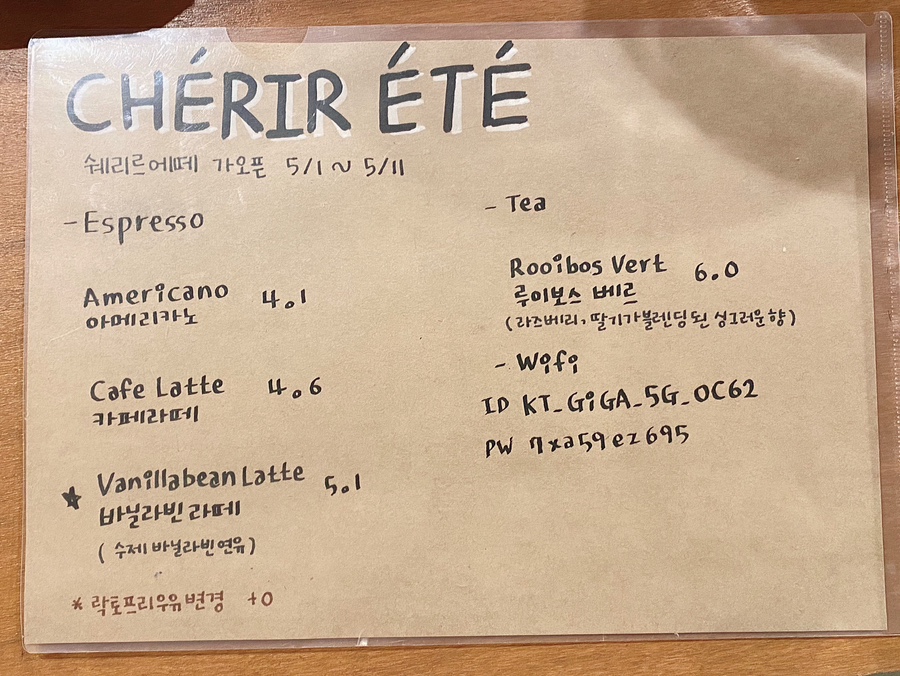 CHÉRIR ÉTÉ
쉐리르에떼 가오픈 5/1 ~ 5/11
- Espresso
Americano 4.1
아메리카노
Cafe Latte 4.6
카페라떼
★ Vanillabean Latte 5.1
바닐라빈 라떼
(수제 바닐라빈 연유)
* 락토프리우유 변경 +0
- Tea
Rooibos Vert 6.0
루이보스 베르
(라즈베리, 딸기가 블렌딩 된 싱그러운 향)
- Wifi
ID KT_GiGA_5G_0C62
PW 7xa59ez695